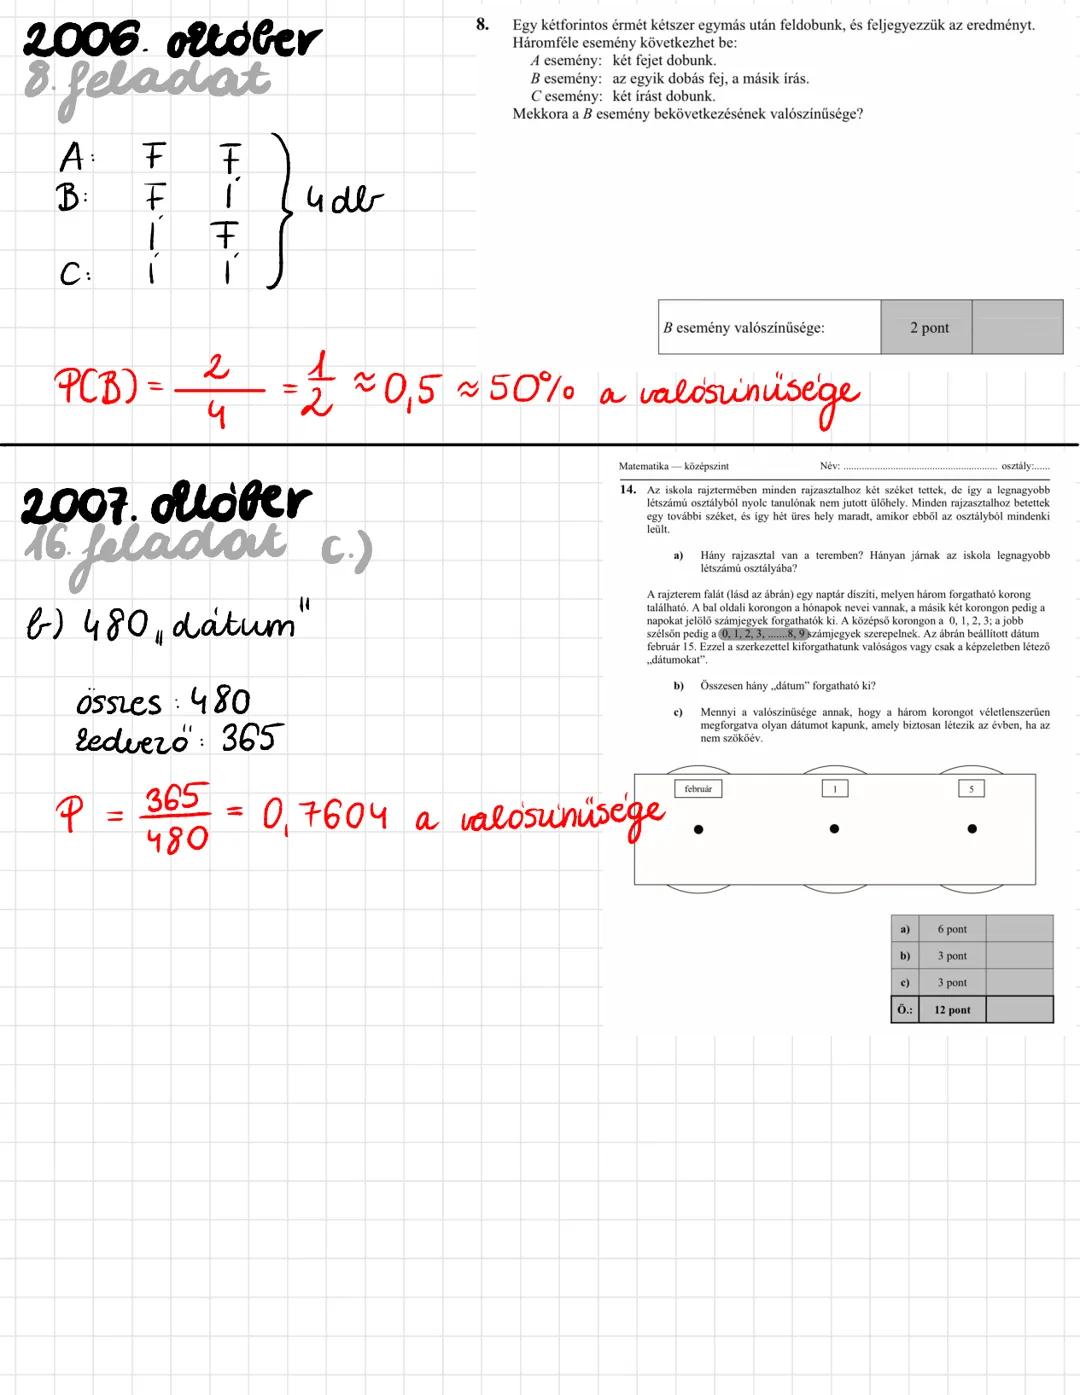 2006. október
8. feladat
8. Egy kétforintos érmét kétszer egymás után feldobunk, és feljegyezzük az eredményt.
Háromféle esemény következhet be:
A esemény: két fejet dobunk.
B esemény: az egyik dobás fej, a másik írás.
C esemény: két írást dobunk.
Mekkora a B esemény bekövetkezésének valószínűsége?
A: F F
B: F Í
Í F
C: Í Í
4 db
B esemény valószínűsége: 2 pont
P(B) = 2/4 = 1/2 ≈ 0,5 ≈ 50% a valószínűsége
2007. október
16. feladat c.)
b) 480 „dátum"
összes : 480
kedvező : 365
P = 365/480 = 0,7604 a valószínűsége
Matematika — középszint Név: ........................ osztály:......
14. Az iskola rajztermében minden rajzasztalhoz két széket tettek, de így a legnagyobb
létszámú osztályból nyolc tanulónak nem jutott ülőhely. Minden rajzasztalhoz betettek
egy további széket, és így hét üres hely maradt, amikor ebből az osztályból mindenki
leült.
a) Hány rajzasztal van a teremben? Hányan járnak az iskola legnagyobb
létszámú osztályába?
A rajzterem falát (lásd az ábrán) egy naptár díszíti, melyen három forgatható korong
található. A bal oldali korongon a hónapok nevei vannak, a másik két korongon pedig a
napokat jelölő számjegyek forgathatók ki. A középső korongon a 0, 1, 2, 3; a jobb
szélsőn pedig a 0, 1, 2, 3, .......8, 9 számjegyek szerepelnek. Az ábrán beállított dátum
február 15. Ezzel a szerkezettel kiforgathatunk valóságos vagy csak a képzeletben létező
„dátumokat”.
b) Összesen hány „dátum” forgatható ki?
c) Mennyi a valószínűsége annak, hogy a három korongot véletlenszerűen
megforgatva olyan dátumot kapunk, amely biztosan létezik az évben, ha az
nem szökőév.
február 1 5
a) 6 pont
b) 3 pont
c) 3 pont
Ö.: 12 pont